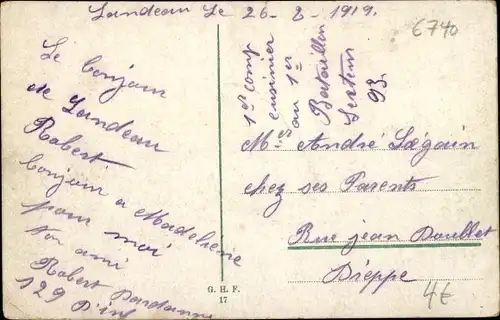 Landeau Le 26-2-1919.
6740
Le bonjour
de Landeau
Robert
bonjour a Madeleine
pour moi
ton ami
Robert
129 D'inf
1er comp
cuisinier
au 1er
Bataillon
Secteur
93.
Mer André Légain
chez ses Parents
Rue jean Doullet
Dieppe
G. H. F.
17
4€